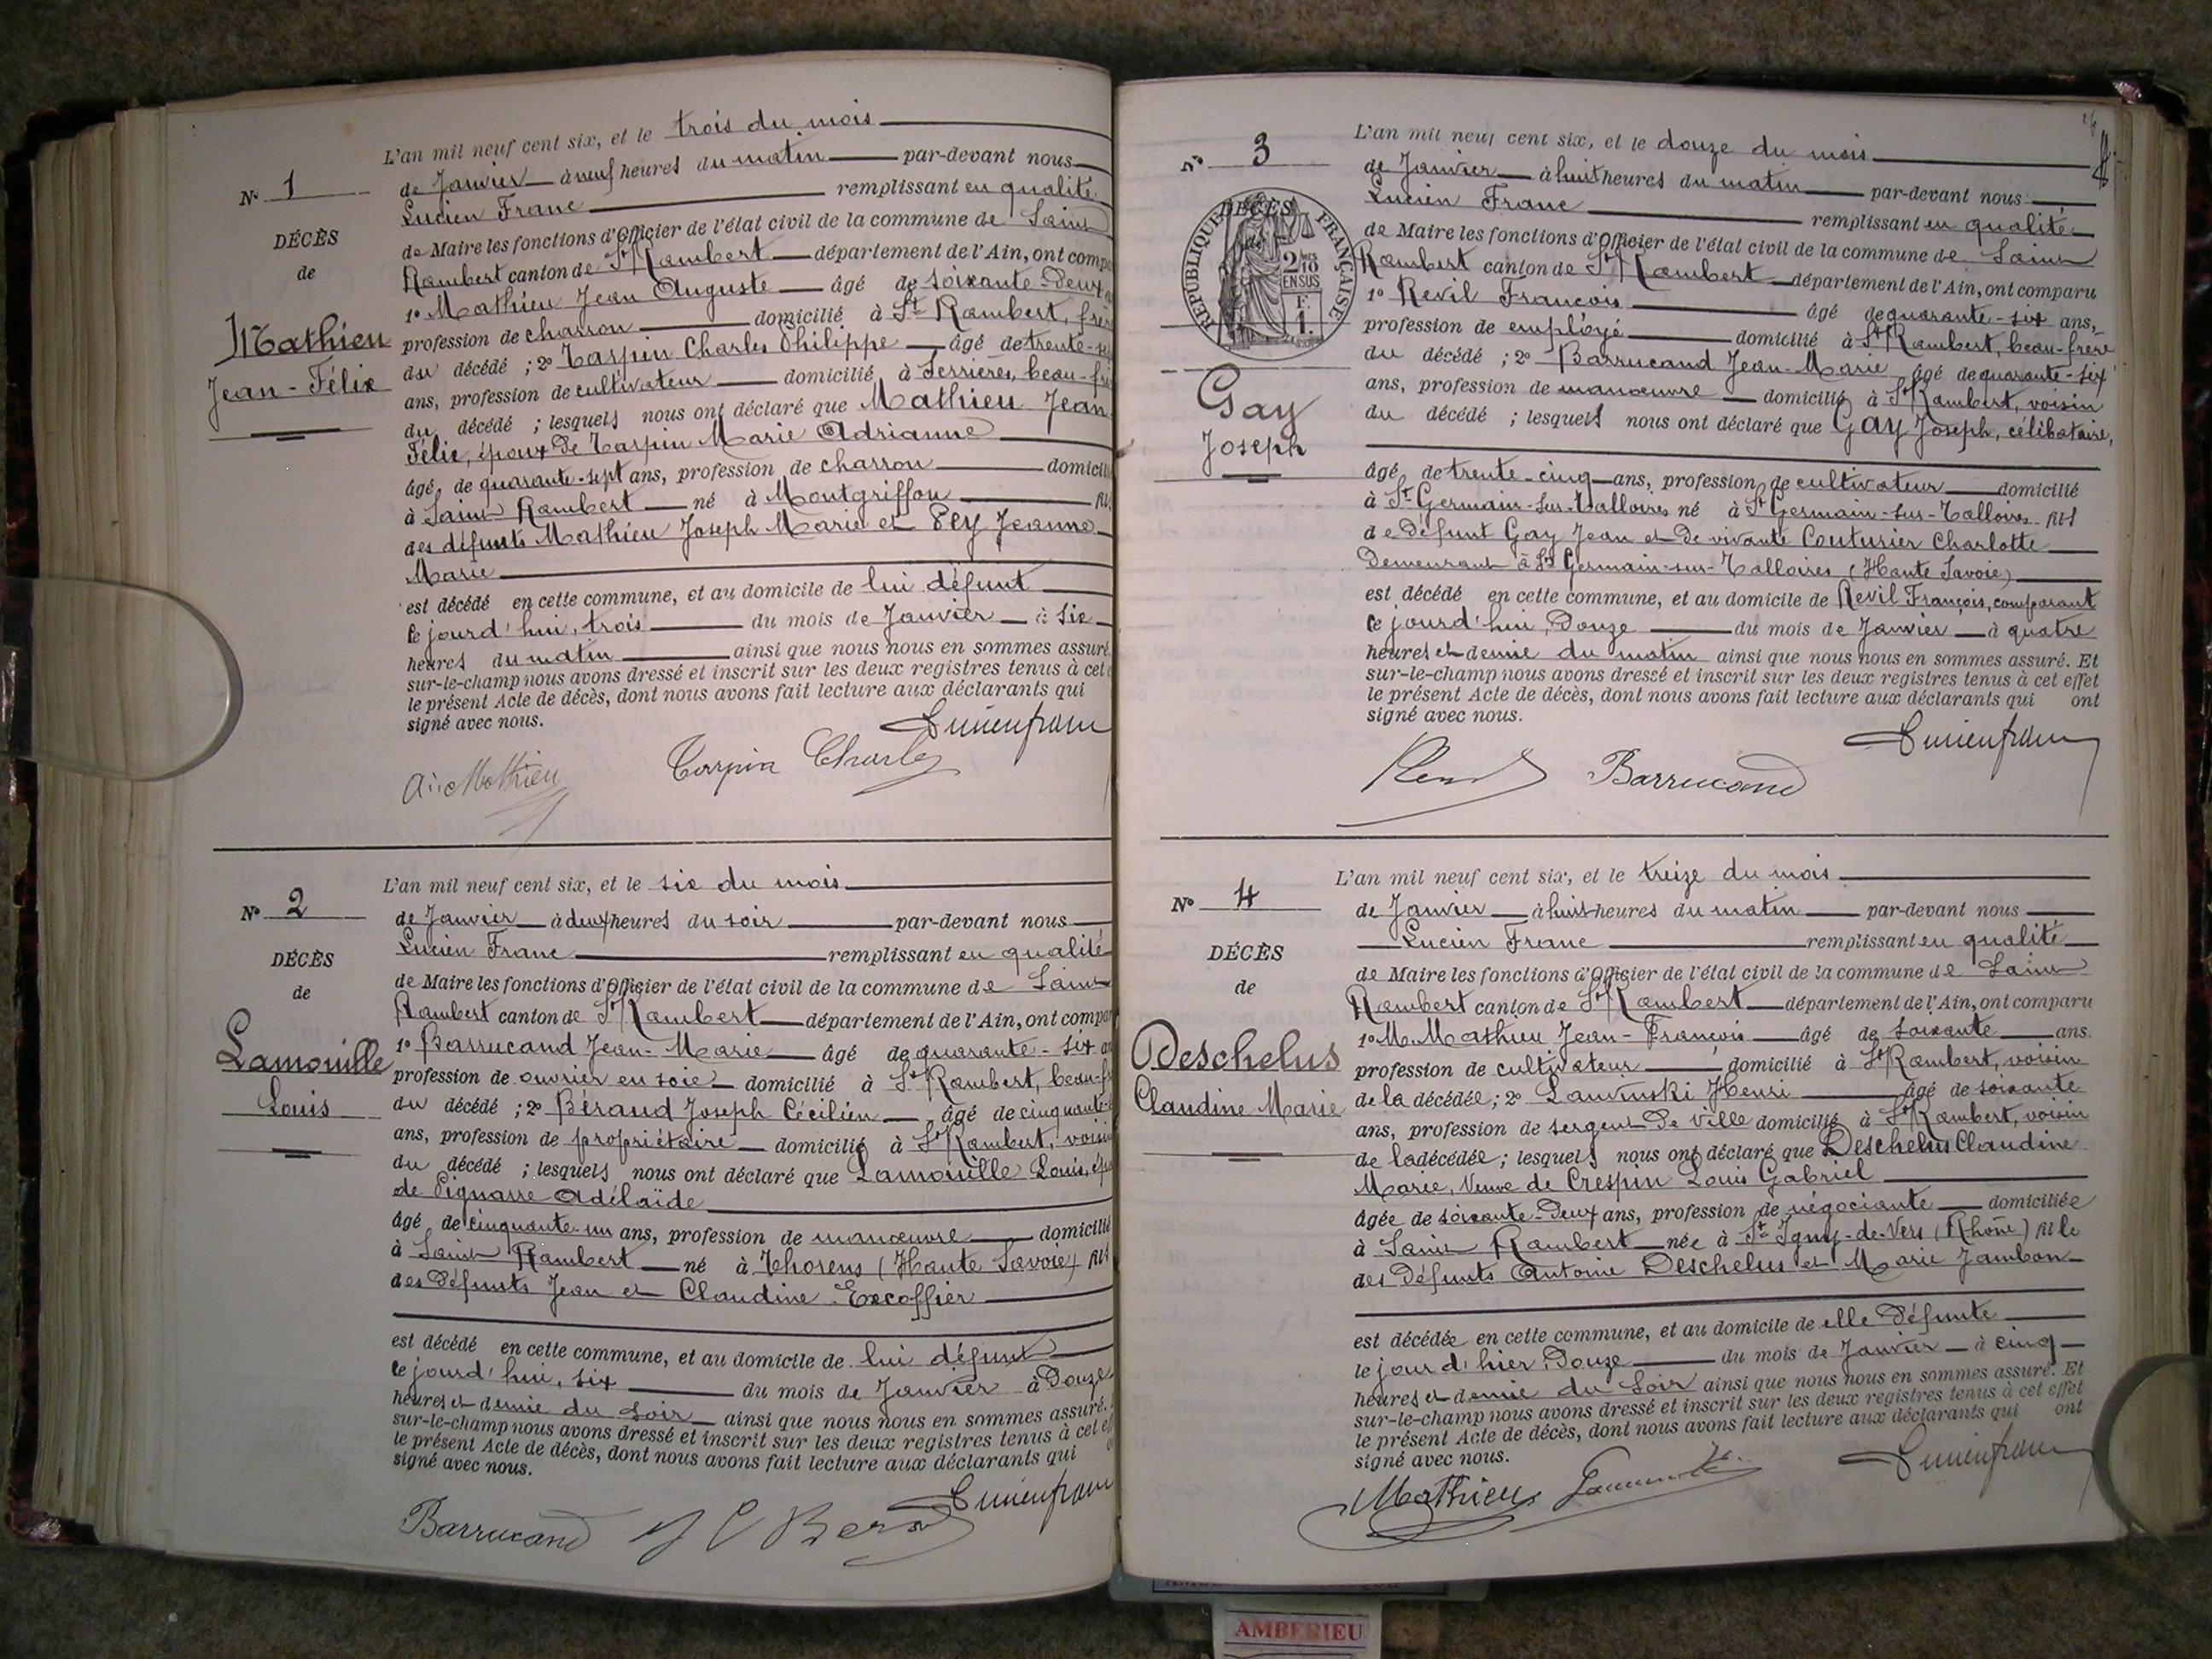 L'an mil neuf cent six, et le trois du mois
Nº 1
de Janvier à neuf heures du matin par-devant nous
Lucien Franc remplissant en qualité
DÉCÈS
de Maire les fonctions d'Officier de l'état civil de la commune de Saint
de
Rambert canton de St Rambert département de l'Ain, ont comp
1º Mathieu Jean Auguste âgé de soixante-deux
Mathieu
profession de charron domicilié à St Rambert, frère
Jean-Félix
du décédé ; 2º Tarpin Charles Philippe âgé de trente-
ans, profession de cultivateur domicilié à Serrières, beau-
du décédé ; lesquels nous ont déclaré que Mathieu Jean
Félix, époux de Tarpin Marie Adrianne
âgé de quarante-sept ans, profession de charron domicil
à Saint Rambert né à Montgriffon
des défunts Mathieu Joseph Marie et Pey Jeanne
Marie
est décédé en cette commune, et au domicile de lui défunt
ce jourd'hui, trois du mois de Janvier à six
heures du matin ainsi que nous nous en sommes assuré.
sur-le-champ nous avons dressé et inscrit sur les deux registres tenus à cet
le présent Acte de décès, dont nous avons fait lecture aux déclarants qui
signé avec nous.
Lucien franc
Mathieu Tarpin Charles
L'an mil neuf cent six, et le six du mois
Nº 2
de Janvier à deux heures du soir par-devant nous
Lucien Franc remplissant en qualité
DÉCÈS
de Maire les fonctions d'Officier de l'état civil de la commune de Saint
de
Rambert canton de St Rambert département de l'Ain, ont compa
1º Barrucand Jean-Marie âgé de quarante-six
Lamouille
profession de ouvrier en soie domicilié à St Rambert, beau-
Louis
du décédé ; 2º Béraud Joseph Cécilien âgé de cinquante
ans, profession de propriétaire domicilié à St Rambert, voisin
du décédé ; lesquels nous ont déclaré que Lamouille Louis,
de Pignarre Adélaïde
âgé de cinquante-un ans, profession de manœuvre domicilié
à Saint Rambert né à Thorens (Haute Savoie) fils
des défunts Jean et Claudine Excoffier
est décédé en cette commune, et au domicile de lui défunt
ce jourd'hui, six du mois de Janvier à Douze
heures et demie du soir ainsi que nous nous en sommes assuré.
sur-le-champ nous avons dressé et inscrit sur les deux registres tenus à cet
le présent Acte de décès, dont nous avons fait lecture aux déclarants qui
signé avec nous.
Lucien franc
Barrucand
L'an mil neuf cent six, et le douze du mois
Nº 3
de Janvier à huit heures du matin par-devant nous
Lucien Franc remplissant en qualité
DÉCÈS
RÉPUBLIQUE FRANÇAISE
2/10 EN SUS
F. 1.
de Maire les fonctions d'Officier de l'état civil de la commune de Saint
Rambert canton de St Rambert département de l'Ain, ont comparu
1º Revil François âgé de quarante-six ans,
profession de employé domicilié à St Rambert, beau-frère
du décédé ; 2º Barrucand Jean-Marie âgé de quarante-six
Gay
ans, profession de manœuvre domicilié à St Rambert, voisin
Joseph
du décédé ; lesquels nous ont déclaré que Gay Joseph, célibataire,
âgé de trente-cinq ans, profession de cultivateur domicilié
à St Germain-sur-Talloires né à St Germain-sur-Talloires fils
de défunt Gay Jean et de vivante Couturier Charlotte
Demeurant à St Germain-sur-Talloires (Haute Savoie)
est décédé en cette commune, et au domicile de Revil François, comparant
ce jourd'hui, Douze du mois de Janvier à quatre
heures et demie du matin ainsi que nous nous en sommes assuré. Et
sur-le-champ nous avons dressé et inscrit sur les deux registres tenus à cet effet
le présent Acte de décès, dont nous avons fait lecture aux déclarants qui ont
signé avec nous.
Lucien franc
Revil Barrucand
L'an mil neuf cent six, et le treize du mois
Nº 4
de Janvier à huit heures du matin par-devant nous
Lucien Franc remplissant en qualité
DÉCÈS
de Maire les fonctions d'Officier de l'état civil de la commune de Saint
de
Rambert canton de St Rambert département de l'Ain, ont comparu
1º M. Mathieu Jean-François âgé de soixante ans.
Deschelus
profession de cultivateur domicilié à St Rambert, voisin
Claudine Marie
de la décédée ; 2º Henri âgé de soixante
ans, profession de sergent de ville domicilié à St Rambert, voisin
de la décédée ; lesquels nous ont déclaré que Deschelus Claudine
Marie, Veuve de Crespin Louis Gabriel
âgée de soixante-deux ans, profession de négociante domiciliée
à Saint Rambert née à St Igny-de-Vers (Rhône) fille
des défunts Antoine Deschelus et Marie Jambon
est décédée en cette commune, et au domicile de elle défunte
le jour d'hier Douze du mois de Janvier à cinq
heures et demie du soir ainsi que nous nous en sommes assuré. Et
sur-le-champ nous avons dressé et inscrit sur les deux registres tenus à cet effet
le présent Acte de décès, dont nous avons fait lecture aux déclarants qui ont
signé avec nous.
Lucien franc
Mathieu
AMBERIEU